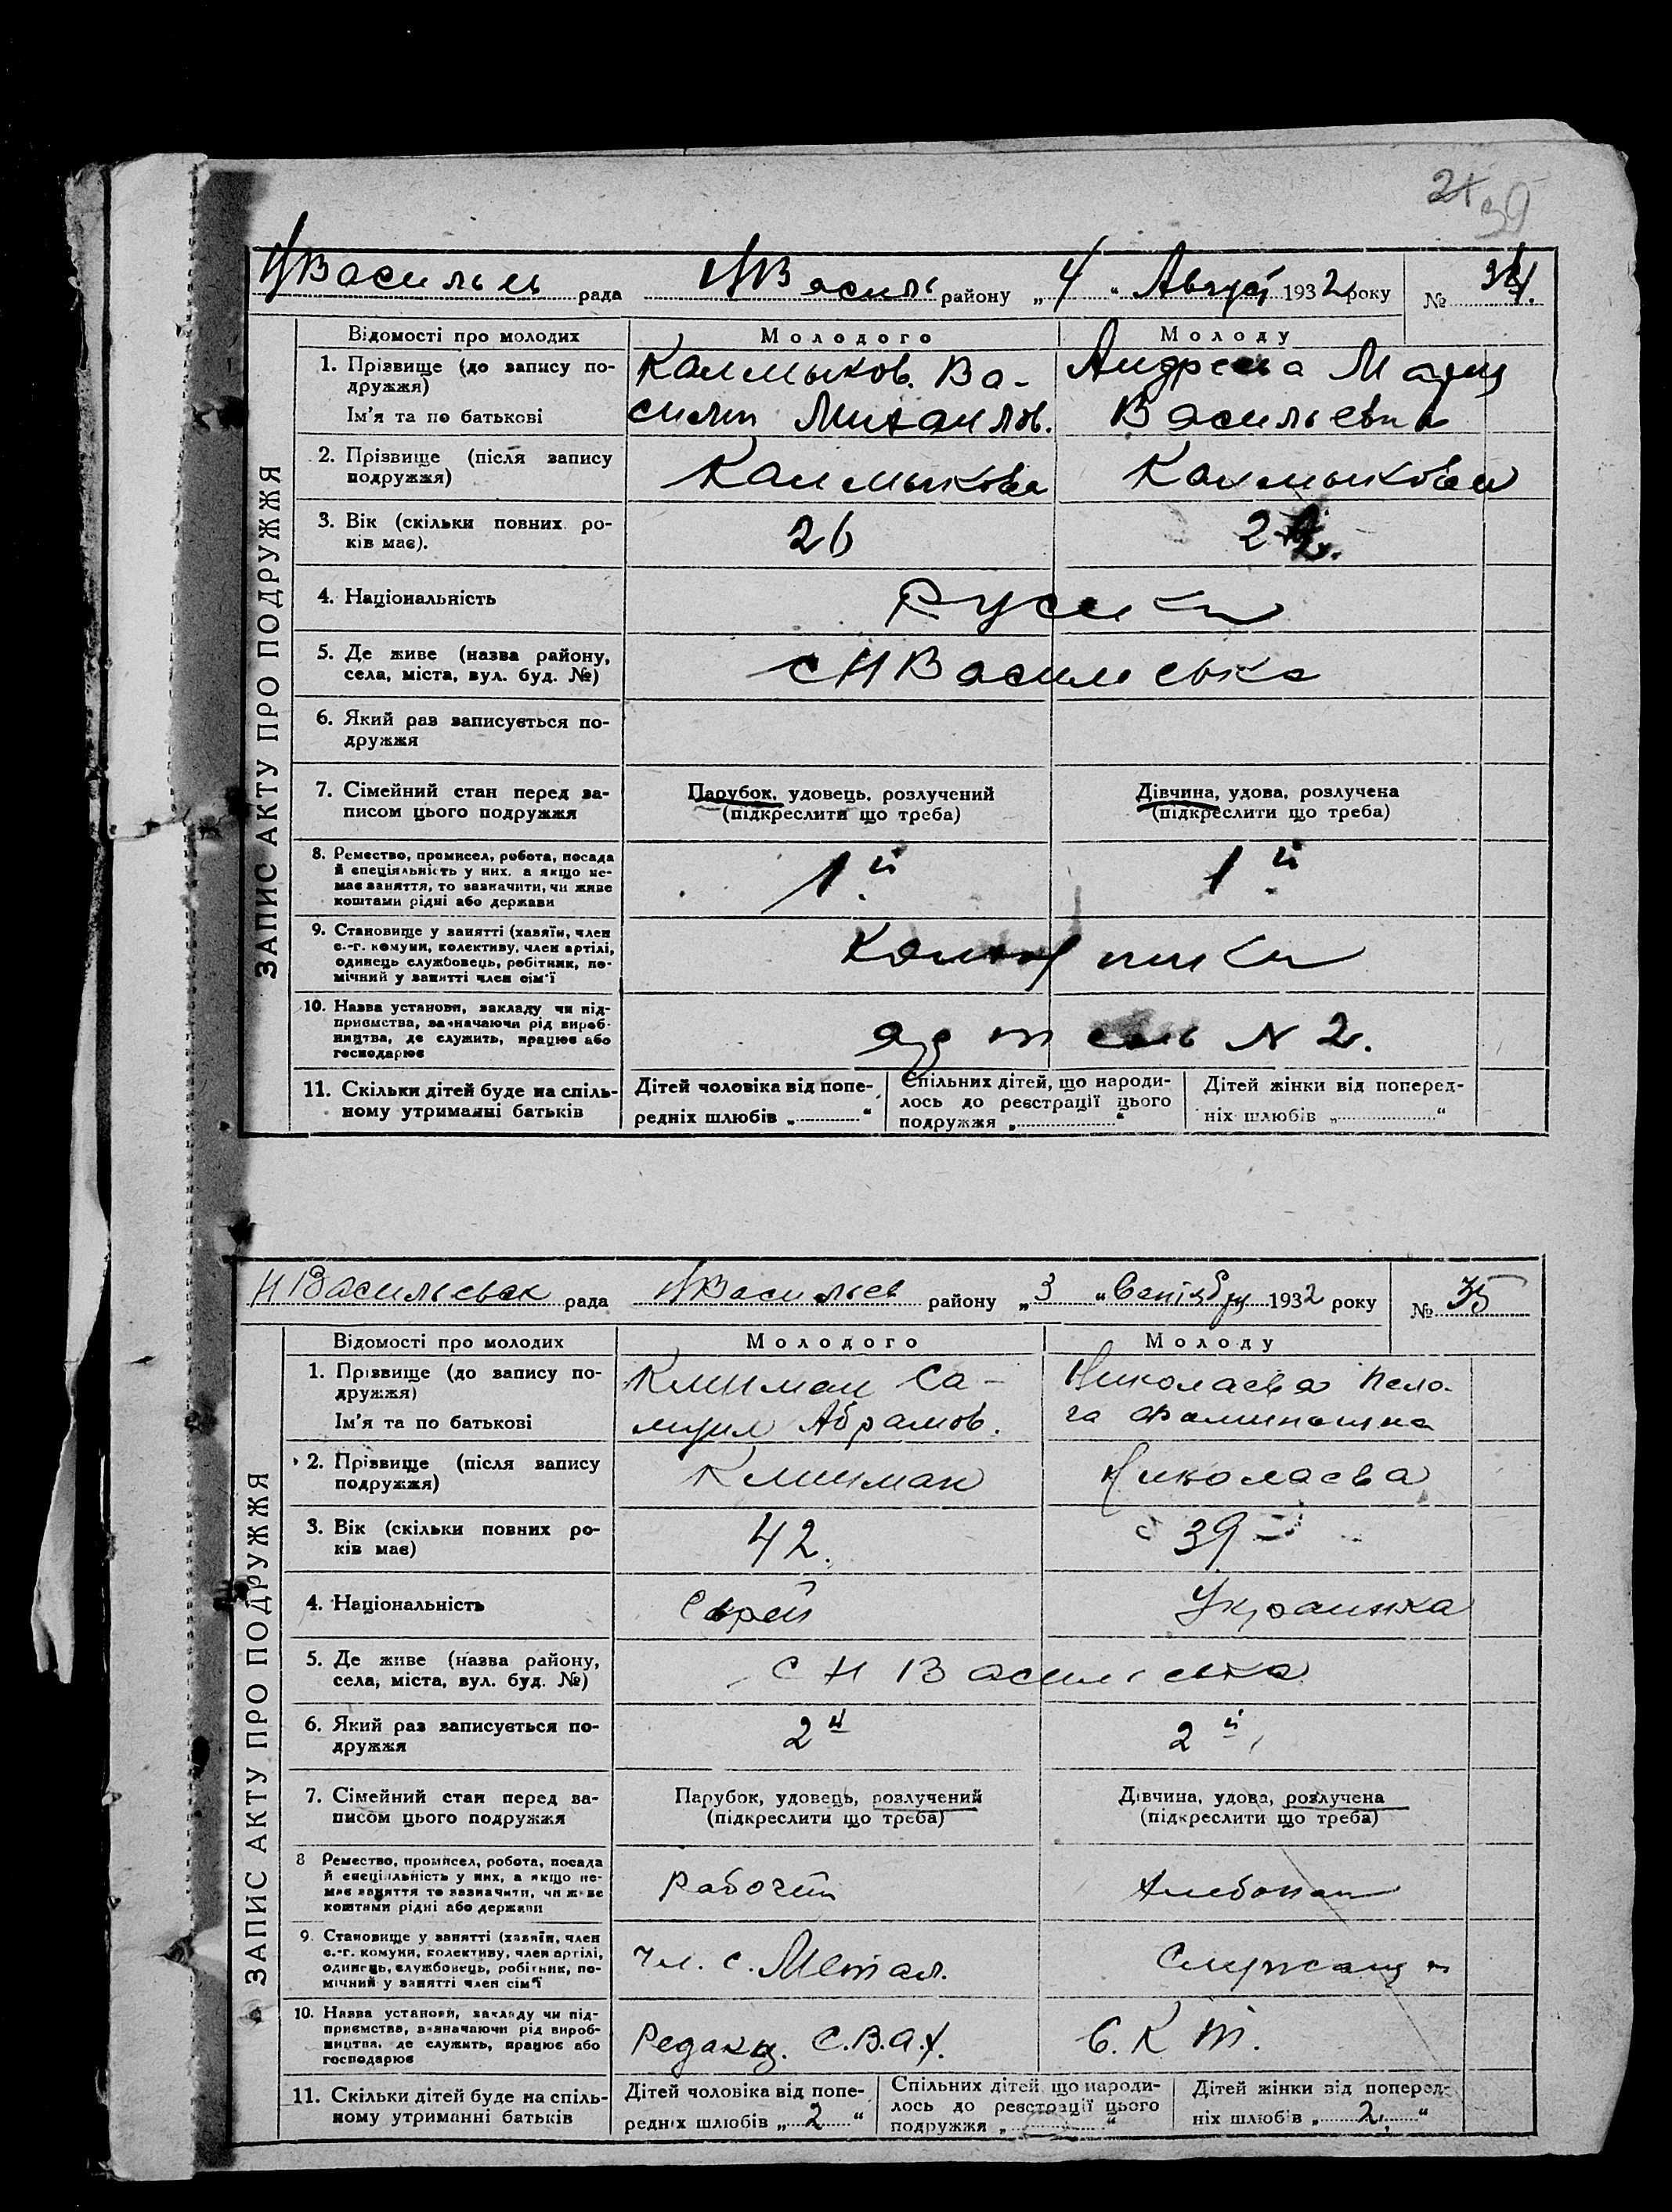 21 39
НВасильев рада НВасиль району „4“ Август 1932 року № 34.
ЗАПИС АКТУ ПРО ПОДРУЖЖЯ
Відомості про молодих Молодого Молоду
1. Прізвище (до запису по-
дружжя)
Ім'я та по батькові
Калмыков Ва-
силий Михаилов.
Андреева Мария
Васильевна
2. Прізвище (після запису
подружжя)
Калмыкова Калмыкова
3. Вік (скільки повних ро-
ків має).
26 22.
4. Національність
Русские
5. Де живе (назва району,
села, міста, вул. буд. №)
с НВасилевка
6. Який раз записується по-
дружжя
7. Сімейний стан перед за-
писом цього подружжя
Парубок, удовець, розлучений
(підкреслити що треба)
Дівчина, удова, розлучена
(підкреслити що треба)
8. Ремество, промисел, робота, посада
й спеціяльність у них, а якщо не-
має заняття, то зазначити, чи живе
коштами рідні або держави
1й 1й
9. Становище у занятті (хазяїн, член
с.-г. комуни, колективу, член артілі,
одинець службовець, робітник, по-
мічний у занятті член сім'ї
10. Назва установи, закладу чи під-
приємства, зазначаючи рід вироб-
ництва, де служить, працює або
господарює
артель N 2.
11. Скільки дітей буде на спіль-
ному утриманні батьків
Дітей чоловіка від попе-
редніх шлюбів „ “
Спільних дітей, що народи-
лось до реєстрації цього
подружжя „ “
Дітей жінки від поперед-
ніх шлюбів „ “
НВасильевск рада НВасильев району „3 “ Сентября 1932 року № 35
ЗАПИС АКТУ ПРО ПОДРУЖЖЯ
Відомості про молодих Молодого Молоду
1. Прізвище (до запису по-
дружжя)
Ім'я та по батькові
Климан Са-
муил Абрамов.
Николаева Пела-
га
2. Прізвище (після запису
подружжя)
Климан Николаева
3. Вік (скільки повних ро-
ків має)
42. 39
4. Національність
Еврей Украинка
5. Де живе (назва району,
села, міста, вул. буд. №)
с Н Василевка
6. Який раз записується по-
дружжя
2й 2й
7. Сімейний стан перед за-
писом цього подружжя
Парубок, удовець, розлучений
(підкреслити що треба)
Дівчина, удова, розлучена
(підкреслити що треба)
8 Ремество, промисел, робота, посада
й спеціяльність у них, а якщо не-
має заняття то зазначити, чи живе
коштами рідні або держави
Рабочий Хлебопек
9. Становище у занятті (хазяїн, член
с.-г. комуни, колективу, член артілі,
одинець, службовець, робітник, по-
мічний у занятті член сім'ї
Чл. с. Метал. Служащ
10. Назва установи, закладу чи під-
приємства, зазначаючи рід вироб-
ництва, де служить, працює або
господарює
Редакц. С.В.
11. Скільки дітей буде на спіль-
ному утриманні батьків
Дітей чоловіка від попе-
редніх шлюбів „ 2 “
Спільних дітей що народи-
лось до реєстрації цього
подружжя „ “
Дітей жінки від поперед-
ніх шлюбів „ 2 “